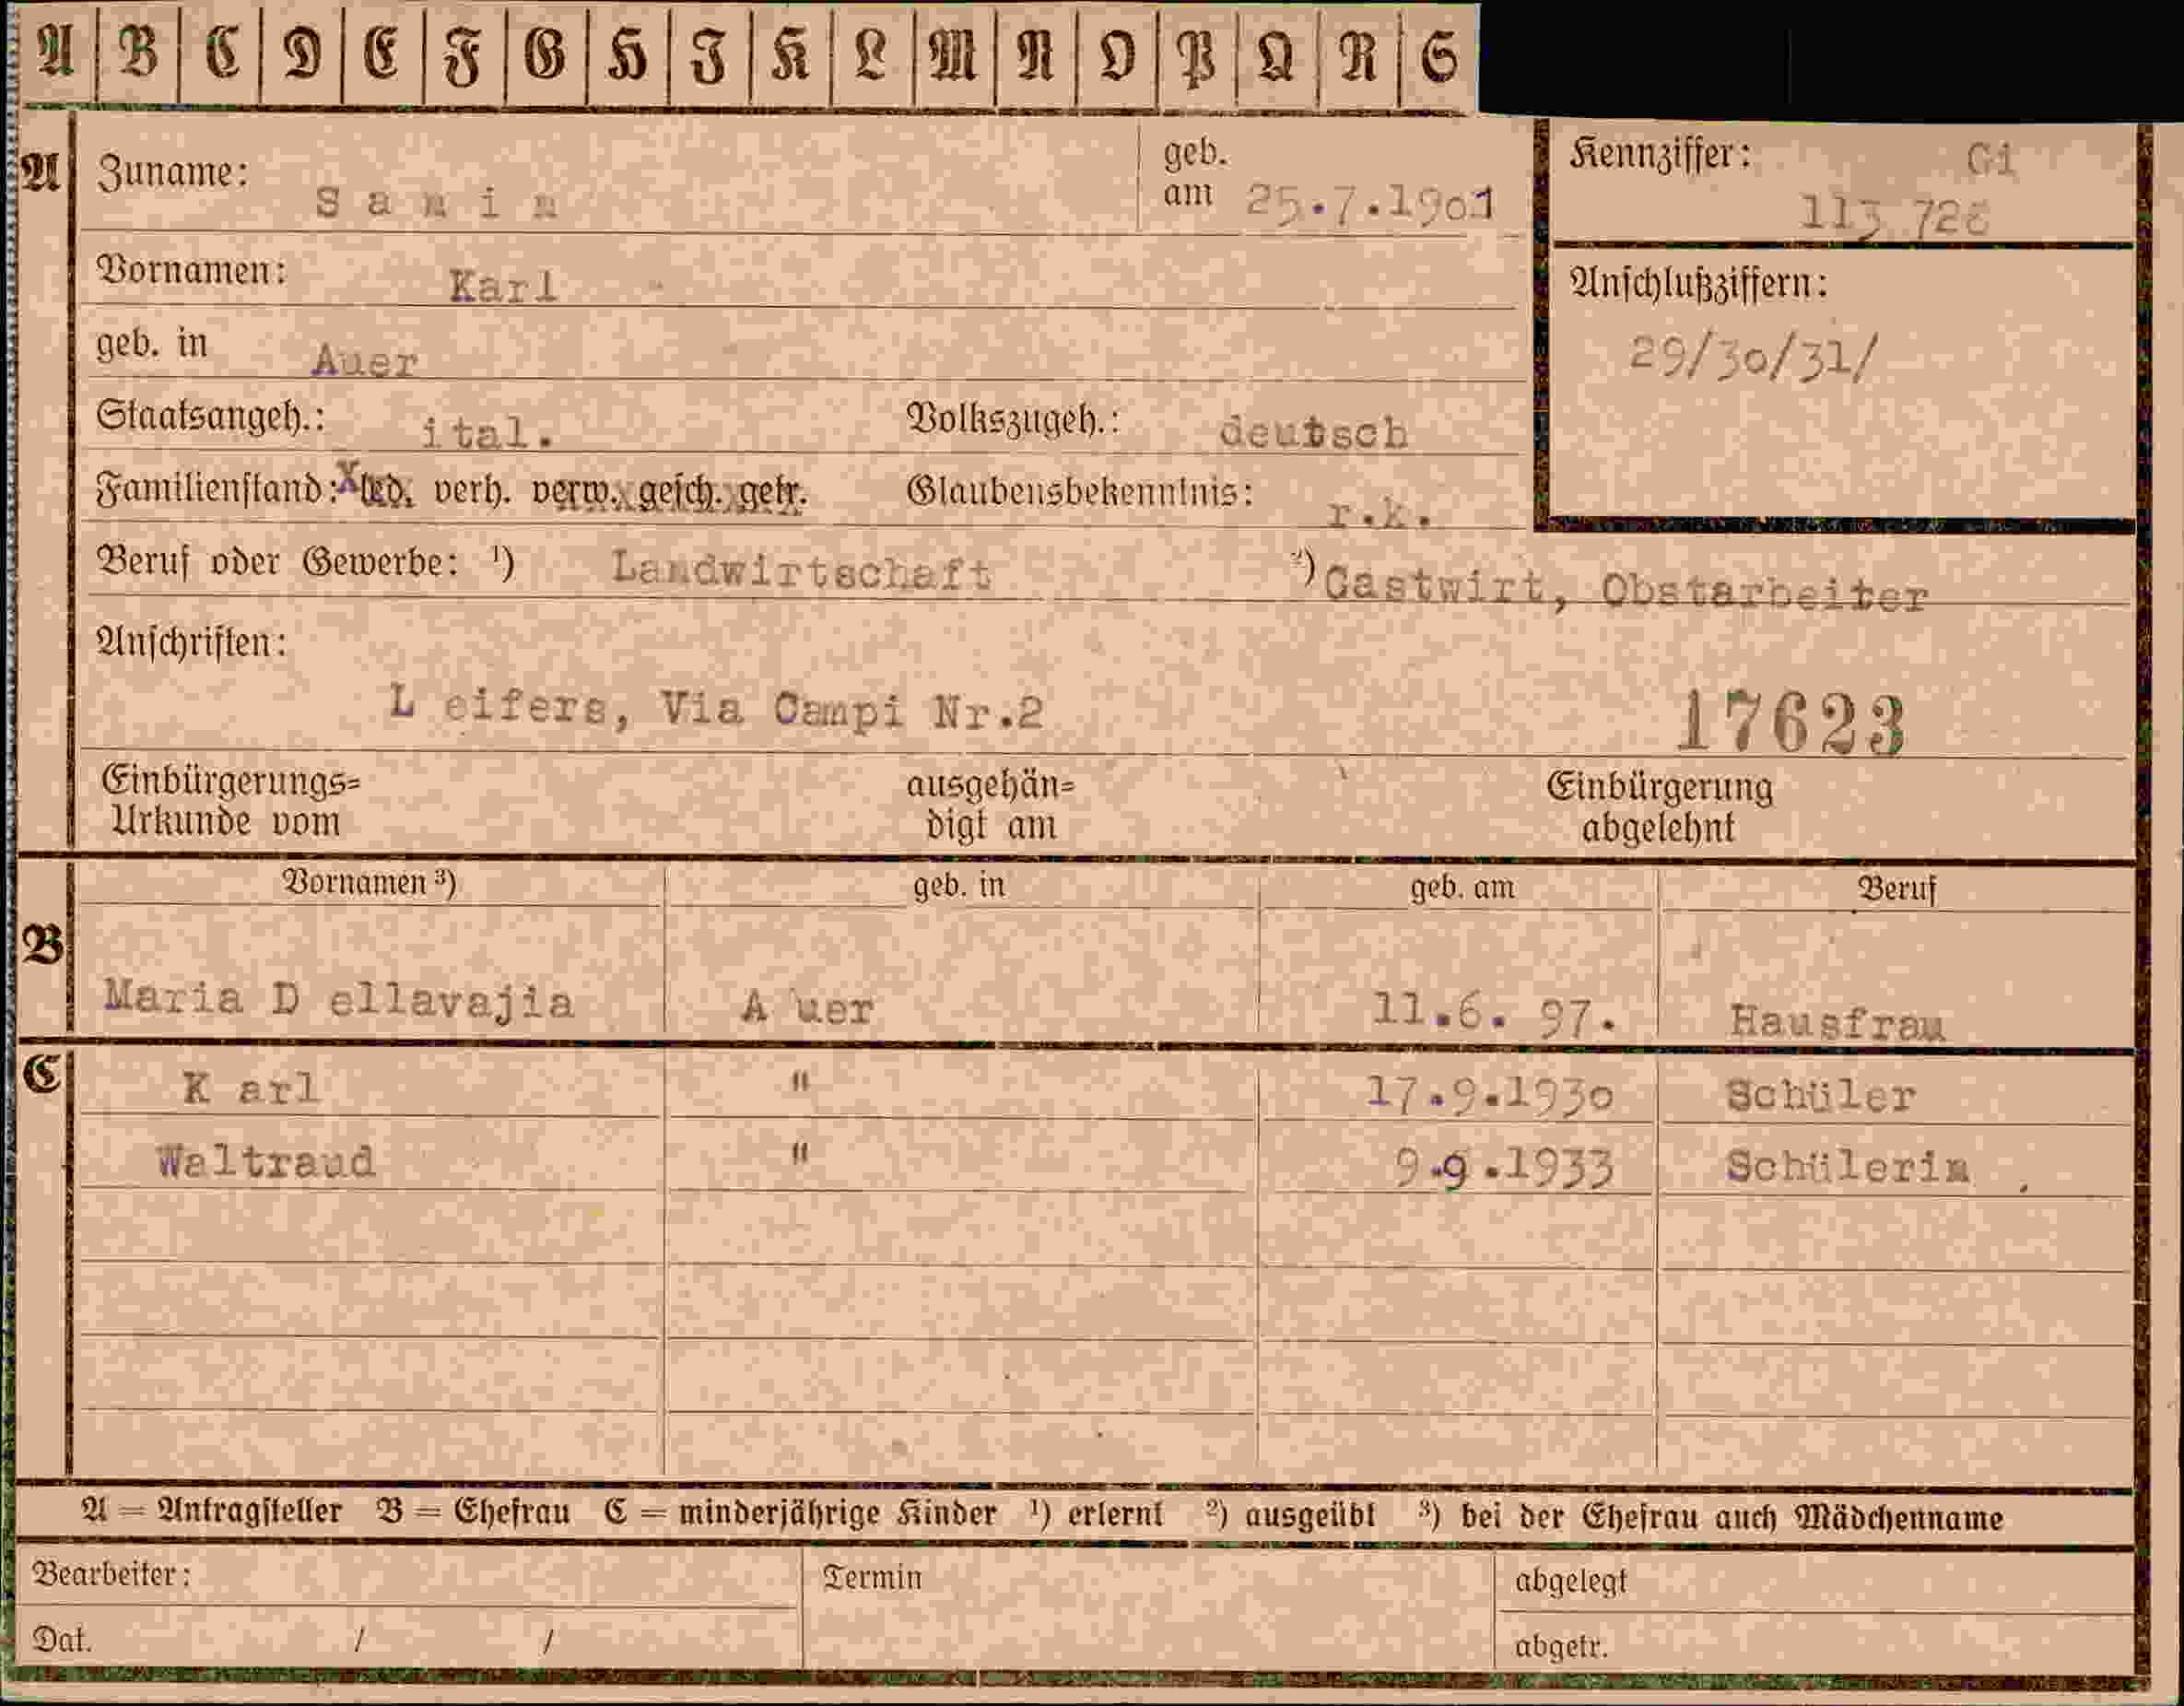 A B C D E F G H I K L M N O P Q R S
A Zuname: geb. am 25.7.1901
Kennziffer: Gi
Vornamen: Karl
Anschlußziffern:
29/30/31/
geb. in Auer
Staatsangeh.: ital. Volkszugeh.: deutsch
Familienstand: led. verh. verw. gesch. getr. Glaubensbekenntnis: r.k.
Beruf oder Gewerbe: ¹) Landwirtschaft ²) Gastwirt, Obstarbeiter
Anschriften:
L eifers, Via Campi Nr.2 17623
Einbürgerungs= Urkunde vom ausgehän= digt am Einbürgerung abgelehnt
Vornamen ³) geb. in geb. am Beruf
B
Maria D ellavajia A uer 11.6. 97. Hausfrau
C K arl " 17.9.1930 Schüler
Waltraud " 9.9.1933 Schülerin
A = Antragsteller B = Ehefrau C = minderjährige Kinder ¹) erlernt ²) ausgeübt ³) bei der Ehefrau auch Mädchenname
Bearbeiter: Termin abgelegt
Dat. / / abgetr.